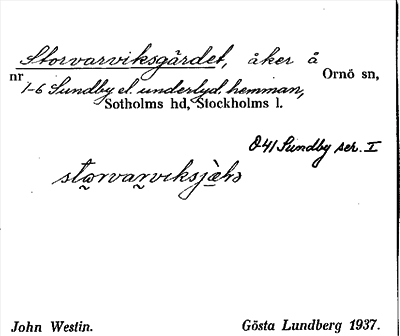 Storvarviksgärdet, åker å
nr Ornö sn,
1-6 Sundby el. underlyd. hemman,
Sotholms hd, Stockholms l.
O41 Sundby ser. I
John Westin. Gösta Lundberg 1937.